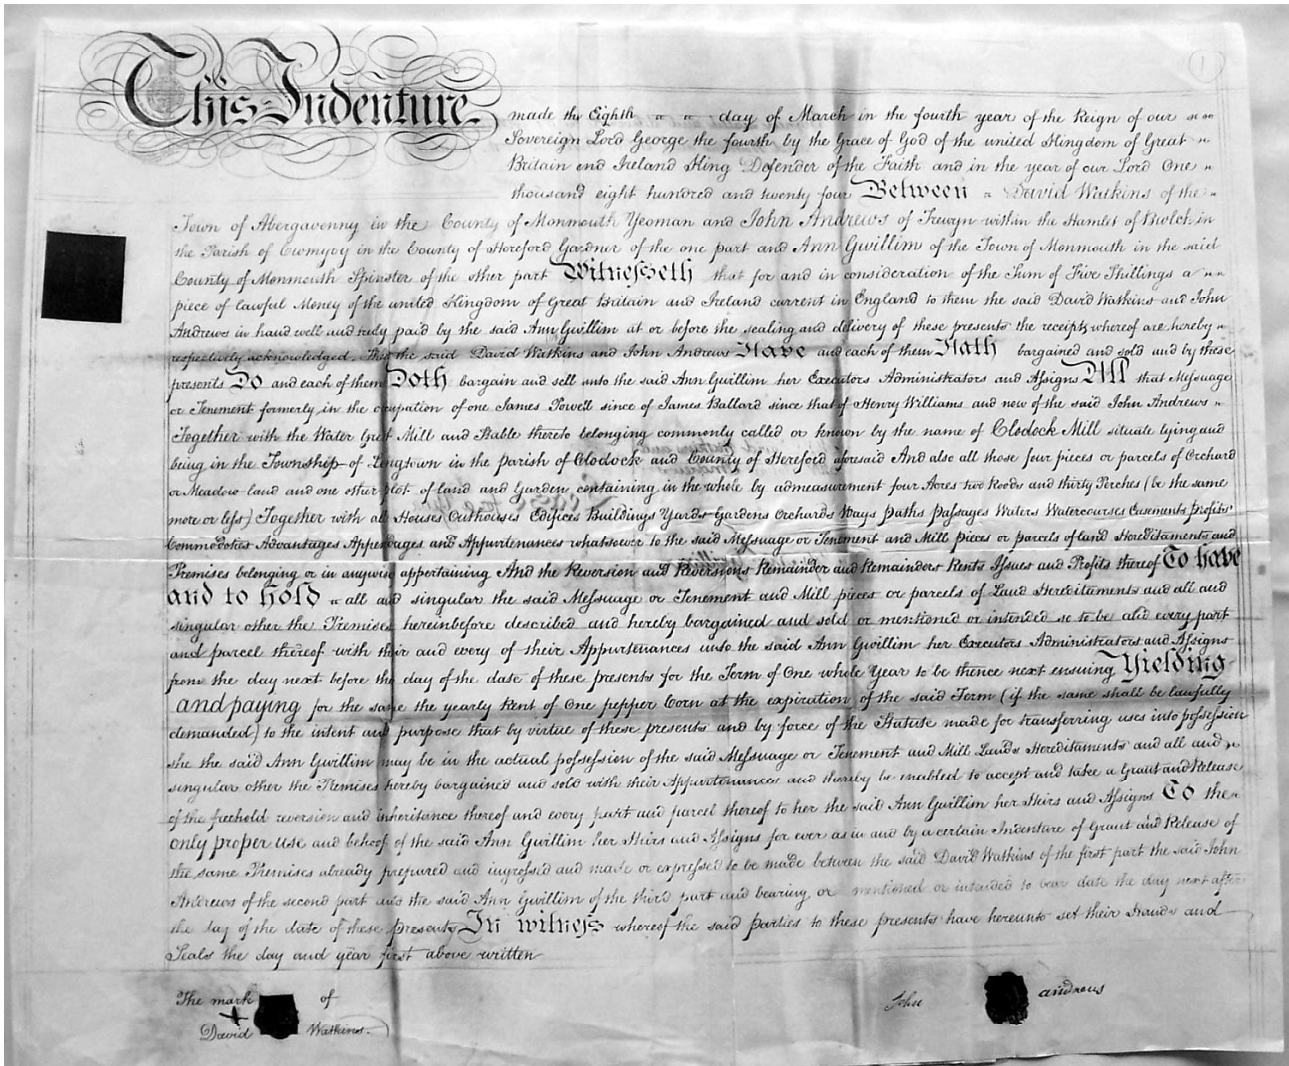 1
This Indenture made the Eighth day of March in the fourth year of the Reign of our
Sovereign Lord George the fourth by the Grace of God of the united Kingdom of Great
Britain and Ireland King Defender of the Faith and in the year of our Lord One
thousand eight hundred and twenty four Between David Watkins of the
Town of Abergavenny in the County of Monmouth Yeoman and John Andrews of Trewyn within the Hamlet of Bwlch in
the Parish of Cwmyoy in the County of Hereford Gardner of the one part and Ann Gwillim of the Town of Monmouth in the said
County of Monmouth Spinster of the other part Witnesseth that for and in consideration of the Sum of Five Shillings a
piece of lawful Money of the united Kingdom of Great Britain and Ireland current in England to them the said David Watkins and John
Andrews in hand well and truly paid by the said Ann Gwillim at or before the sealing and delivery of these presents the receipts whereof are hereby
respectively acknowledged They the said David Watkins and John Andrews Have and each of them Hath bargained and sold and by these
presents Do and each of them Doth bargain and sell unto the said Ann Gwillim her Executors Administrators and Assigns All that Messuage
or Tenement formerly in the ocupation of one James Powell since of James Ballard since that of Henry Williams and now of the said John Andrews
Together with the Water Grist Mill and Stable thereto belonging commonly called or known by the name of Clodock Mill situate lying and
being in the Township of Longtown in the parish of Clodock and County of Hereford aforesaid And also all those four pieces or parcels of Orchard
or Meadow land and one other plot of land and Garden containing in the whole by admeasurement four Acres two Roods and thirty Perches (be the same
more or less) Together with all Houses Outhouses Edifices Buildings Yards Gardens Orchards Ways paths passages Waters Watercourses Easements profits
Commodities Advantages Appendages and Appurtenances whatsoever to the said Messuage or Tenement and Mill pieces or parcels of land Hereditaments and
Premises belonging or in anywise appertaining And the Reversion and Reversions Remainder and Remainders Rents Issues and Profits thereof To have
and to hold all and singular the said Messuage or Tenement and Mill pieces or parcels of Land Hereditaments and all and
singular other the Premises hereinbefore described and hereby bargained and sold or mentioned or intended so to be and every part
and parcel thereof with their and every of their Appurtenances unto the said Ann Gwillim her Executors Administrators and Assigns
from the day next before the day of the date of these presents for the Term of One whole Year to be thence next ensuing Yielding
and paying for the same the yearly Rent of One pepper Corn at the expiration of the said Term (if the same shall be lawfully
demanded) to the intent and purpose that by virtue of these presents and by force of the Statute made for transferring uses into possession
she the said Ann Gwillim may be in the actual possession of the said Messuage or Tenement and Mill Lands Hereditaments and all and
singular other the Premises hereby bargained and sold with their Appurtenances and thereby be enabled to accept and take a Grant and Release
of the freehold reversion and inheritance thereof and every part and parcel thereof to her the said Ann Gwillim her Heirs and Assigns To the
only proper use and behoof of the said Ann Gwillim her Heirs and Assigns for ever as in and by a certain Indenture of Grant and Release of
the same Premises already prepared and ingrossed and made or expressed to be made between the said David Watkins of the first part the said John
Andrews of the second part and the said Ann Gwillim of the third part and bearing or mentioned or intended to bear date the day next after
the day of the date of these presents In witness whereof the said parties to these presents have hereunto set their Hands and
Seals the day and year first above written
The mark of
David Watkins.
John andrews